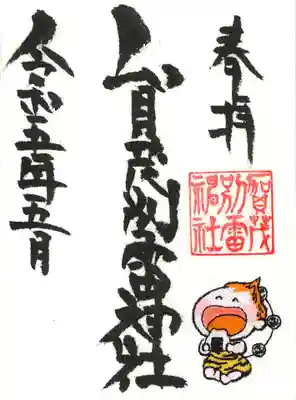 奉拝
賀茂
別雷
神社
賀茂別雷神社
令和五年五月